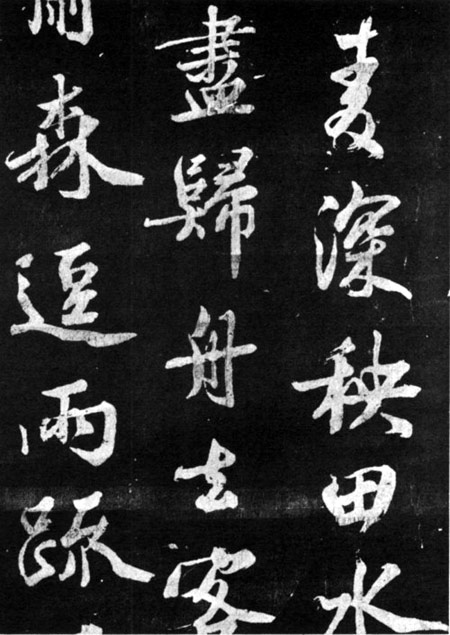 麦深秧田水
盡歸舟去客
森逗雨疏